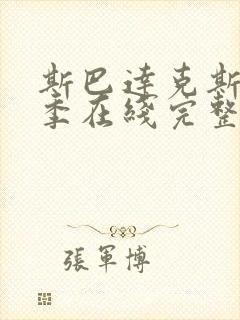 斯巴達克斯
季在綫完整
張軍博